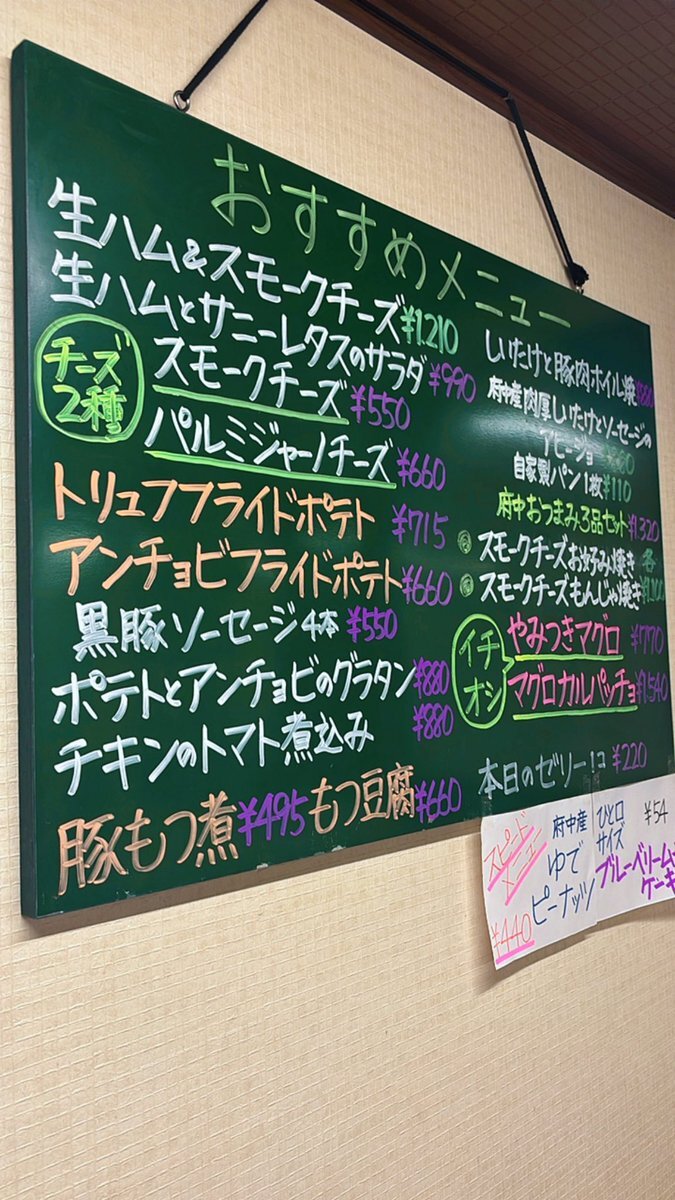 おすすめメニュー
生ハム&スモークチーズ ¥1,210
生ハムとサニーレタスのサラダ ¥990
チーズ2種
スモークチーズ ¥550
パルミジャーノチーズ ¥660
トリュフフライドポテト ¥715
アンチョビフライドポテト ¥660
黒豚ソーセージ4本 ¥550
ポテトとアンチョビのグラタン ¥880
チキンのトマト煮込み ¥880
豚もつ煮 ¥495 もつ豆腐 ¥660
しいたけと豚肉ホイル焼
府中産肉厚しいたけとソーセージの
アヒージョ
自家製パン1枚 ¥110
府中おつまみ3品セット ¥1,320
スモークチーズお好み焼き 各
スモークチーズもんじゃ焼き ¥1,100
イチオシ
やみつきマグロ ¥770
マグロカルパッチョ ¥1,540
本日のゼリー1コ ¥220
スピード
メニュー
¥440
府中産
ゆで
ピーナッツ
ひと口
サイズ
¥54
ブルーベリーム
ケーキ